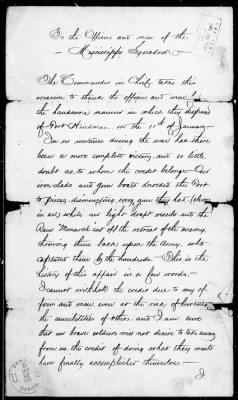 To the Officers and men of the
Mississippi Squadron
The Commander in Chief takes this
occasion to thank the officers and men for
the handsome manner in which they disposed
of Fort Hindman on the 11th of January.
In no instance during the war has there
been a more complete victory, and so little
doubt as to whom the credit belongs. Our
iron-clads and gun boats knocked the Fort
to pieces, dismounting every gun they had
in all, while our light draft vessels and the
Ram Monarch cut off the retreat of the enemy,
throwing them back upon the Army, who
captured them by the hundreds. This is the
history of this affair in a few words.
I cannot withhold the credit due to my of-
ficers and men, even at the risk of hurting
the sensibilities of others, and I am sure
that our brave soldiers will not desire to take away
from us the credit of doing what they must
have finally accomplished themselves
I